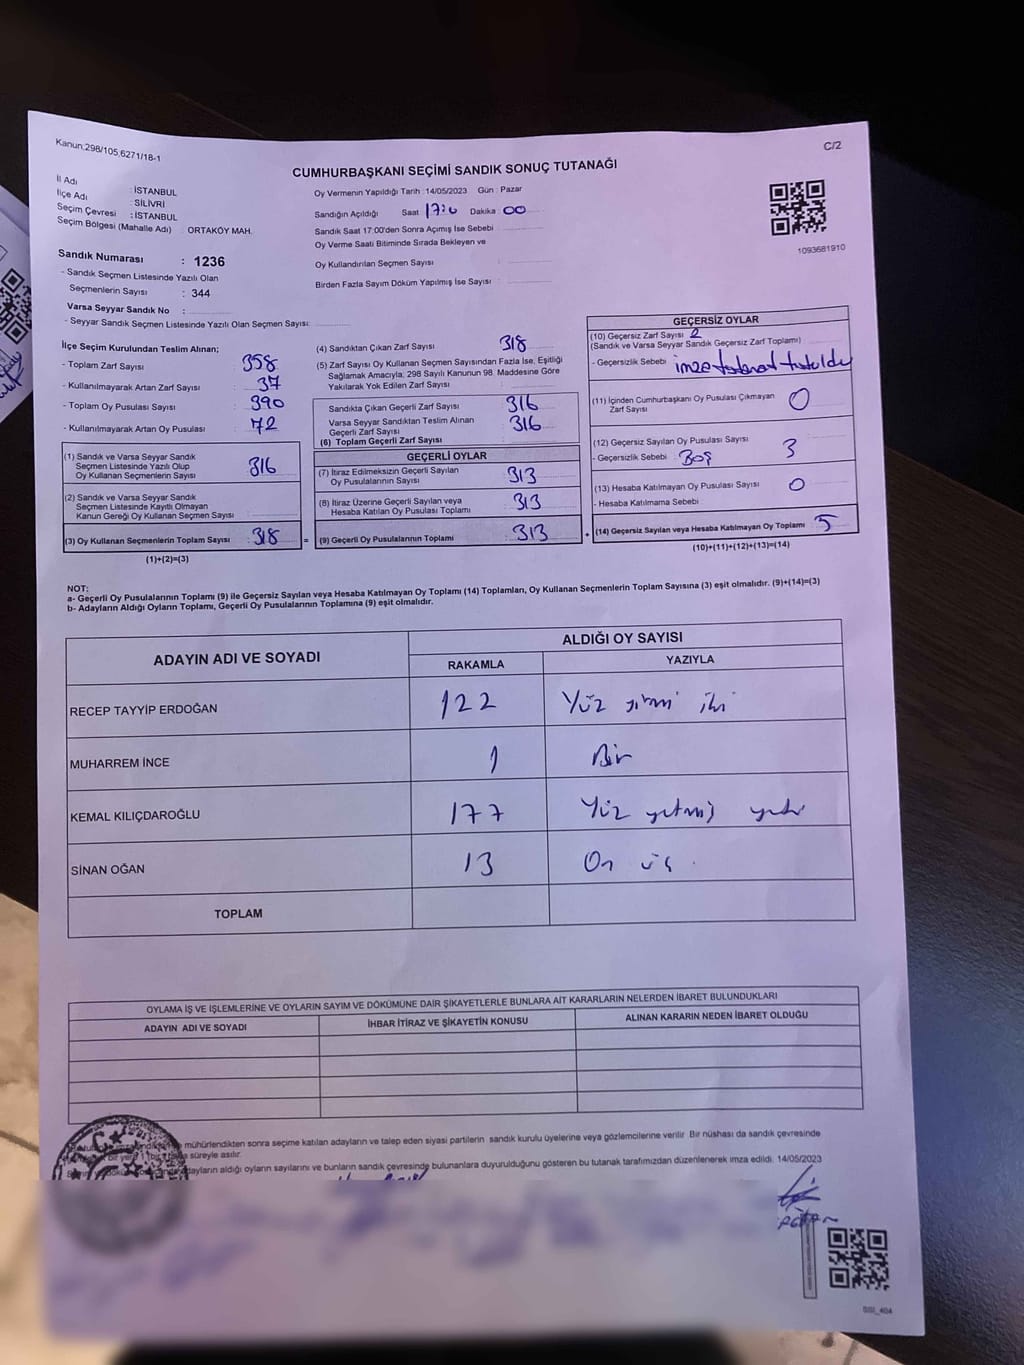 Kanun:298/105,6271/18-1
C/2
CUMHURBAŞKANI SEÇİMİ SANDIK SONUÇ TUTANAĞI
İl Adı : İSTANBUL
İlçe Adı : SİLİVRİ
Seçim Çevresi : İSTANBUL
Seçim Bölgesi (Mahalle Adı) : ORTAKÖY MAH.
Oy Vermenin Yapıldığı Tarih :14/05/2023 Gün : Pazar
Sandığın Açıldığı Saat 17:0 Dakika : 00
Sandık Saat 17:00'den Sonra Açımış İse Sebebi :
Oy Verme Saati Bitiminde Sırada Bekleyen ve
Oy Kullandırılan Seçmen Sayısı :
Birden Fazla Sayım Döküm Yapılmış İse Sayısı :
1093681910
Sandık Numarası : 1236
- Sandık Seçmen Listesinde Yazılı Olan
Seçmenlerin Sayısı : 344
Varsa Seyyar Sandık No :
- Seyyar Sandık Seçmen Listesinde Yazılı Olan Seçmen Sayısı:
İlçe Seçim Kurulundan Teslim Alınan;
- Toplam Zarf Sayısı : 358
- Kullanılmayarak Artan Zarf Sayısı : 37
- Toplam Oy Pusulası Sayısı : 390
- Kullanılmayarak Artan Oy Pusulası : 72
(1) Sandık ve Varsa Seyyar Sandık
Seçmen Listesinde Yazılı Olup
Oy Kullanan Seçmenlerin Sayısı : 316
(2) Sandık ve Varsa Seyyar Sandık
Seçmen Listesinde Kayıtlı Olmayan
Kanun Gereği Oy Kullanan Seçmen Sayısı :
(3) Oy Kullanan Seçmenlerin Toplam Sayısı : 318
(1)+(2)=(3)
(4) Sandıktan Çıkan Zarf Sayısı : 318
(5) Zarf Sayısı Oy Kullanan Seçmen Sayısından Fazla İse, Eşitliği
Sağlamak Amacıyla; 298 Sayılı Kanunun 98. Maddesine Göre
Yakılarak Yok Edilen Zarf Sayısı :
Sandıkta Çıkan Geçerli Zarf Sayısı : 316
Varsa Seyyar Sandıktan Teslim Alınan
Geçerli Zarf Sayısı : 316
(6) Toplam Geçerli Zarf Sayısı :
GEÇERLİ OYLAR
(7) İtiraz Edilmeksizin Geçerli Sayılan
Oy Pusulalarının Sayısı : 313
(8) İtiraz Üzerine Geçerli Sayılan veya
Hesaba Katılan Oy Pusulası Toplamı : 313
=
(9) Geçerli Oy Pusulalarının Toplamı : 313
+
GEÇERSİZ OYLAR
(10) Geçersiz Zarf Sayısı : 2
(Sandık ve Varsa Seyyar Sandık Geçersiz Zarf Toplamı)
- Geçersizlik Sebebi : imza tutanat tutuldu
(11) İçinden Cumhurbaşkanı Oy Pusulası Çıkmayan
Zarf Sayısı : 0
(12) Geçersiz Sayılan Oy Pusulası Sayısı : 3
- Geçersizlik Sebebi : Boş
(13) Hesaba Katılmayan Oy Pusulası Sayısı : 0
- Hesaba Katılmama Sebebi :
(14) Geçersiz Sayılan veya Hesaba Katılmayan Oy Toplamı : 5
(10)+(11)+(12)+(13)=(14)
NOT:
a- Geçerli Oy Pusulalarının Toplamı (9) ile Geçersiz Sayılan veya Hesaba Katılmayan Oy Toplamı (14) Toplamları, Oy Kullanan Seçmenlerin Toplam Sayısına (3) eşit olmalıdır. (9)+(14)=(3)
b- Adayların Aldığı Oyların Toplamı, Geçerli Oy Pusulalarının Toplamına (9) eşit olmalıdır.
ADAYIN ADI VE SOYADI
ALDIĞI OY SAYISI
RAKAMLA YAZIYLA
RECEP TAYYİP ERDOĞAN 122 Yüz yirmi iki
MUHARREM İNCE 1 Bir
KEMAL KILIÇDAROĞLU 177 Yüz yetmiş yedi
SİNAN OĞAN 13 On üç
TOPLAM
OYLAMA İŞ VE İŞLEMLERİNE VE OYLARIN SAYIM VE DÖKÜMÜNE DAİR ŞİKAYETLERLE BUNLARA AİT KARARLARIN NELERDEN İBARET BULUNDUKLARI
ADAYIN ADI VE SOYADI İHBAR İTİRAZ VE ŞİKAYETİN KONUSU ALINAN KARARIN NEDEN İBARET OLDUĞU
mühürlendikten sonra seçime katılan adayların ve talep eden siyasi partilerin sandık kurulu üyelerine veya gözlemcilerine verilir. Bir nüshası da sandık çevresinde
bir yere 1 (bir) süreyle asılır.
adayların aldığı oyların sayılarını ve bunların sandık çevresinde bulunanlara duyurulduğunu gösteren bu tutanak tarafımızdan düzenlenerek imza edildi. 14/05/2023